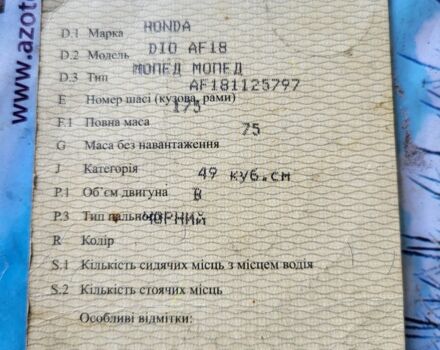 www.azoto
D.1 Марка HONDA
D.2 Модель DIO AF18
D.3 Тип МОПЕД МОПЕД
AF181125797
E Номер шасі (кузова, рами)
175
F.1 Повна маса
75
G Маса без навантаження
J Категорія
49 куб.см
P.1 Об'єм двигуна В
P.3 Тип пального ЧОРНИЙ
R Колір
S.1 Кількість сидячих місць з місцем водія
S.2 Кількість стоячих місць
Особливі відмітки: